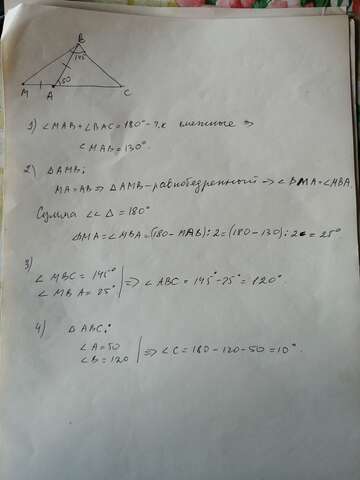 B
145
50
M A C
1) ∠MAB+∠BAC=180°-т.к смежные ⇒
∠MAB=130°.
2) △AMB:
MA=AB ⇒ △AMB-равнобедренный ⇒ ∠BMA=∠MBA
Сумма ∠∠ △ =180°
∠BMA=∠MBA=(180-MAB):2=(180-130):2=25°
3)
∠MBC=145° | ⇒ ∠ABC=145°-25°=120°
∠MBA=25°
4) △ABC:
∠A=50 | ⇒ ∠C=180-120-50=10°.
∠B=120